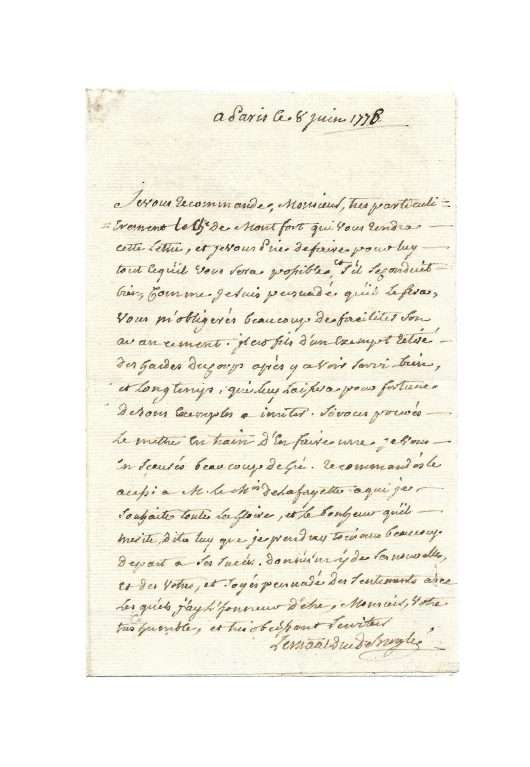 a Paris le 8 juin 1778
Je vous recommande, Monsieur, tres particuli-
=erement le Ch.r de Montfort qui vous rendra
cette lettre, et je vous prie de faire pour luy
tout ce qu'il vous sera possible, et s'il se conduit
bien, comme je suis persuadé qu'il le fera,
vous m'obligerés beaucoup de faciliter son
avancement. il est fils d'un Exempt retiré
des gardes du corps après y avoir servi bien,
et longtemps, qui luy laissera pour fortune
de bons exemples a imiter. si vous pouvés
le mettre en train d'en faire une je vous
en sçauréz beaucoup de gré. recommandés le
aussi a M. le M.is de lafayette a qui je
souhaite toute la gloire, et le bonheur qu'il
merite, dites luy que je prendray toujours beaucoup
de part a ses succès. donnés m'y de ses nouvelles,
et des votres, et soyés persuadé des sentiments avec
les quels j'ay l'honneur d'etre, Monsieur, votre
tres humble, et tres obeissant serviteur
Le mal duc de Broglie